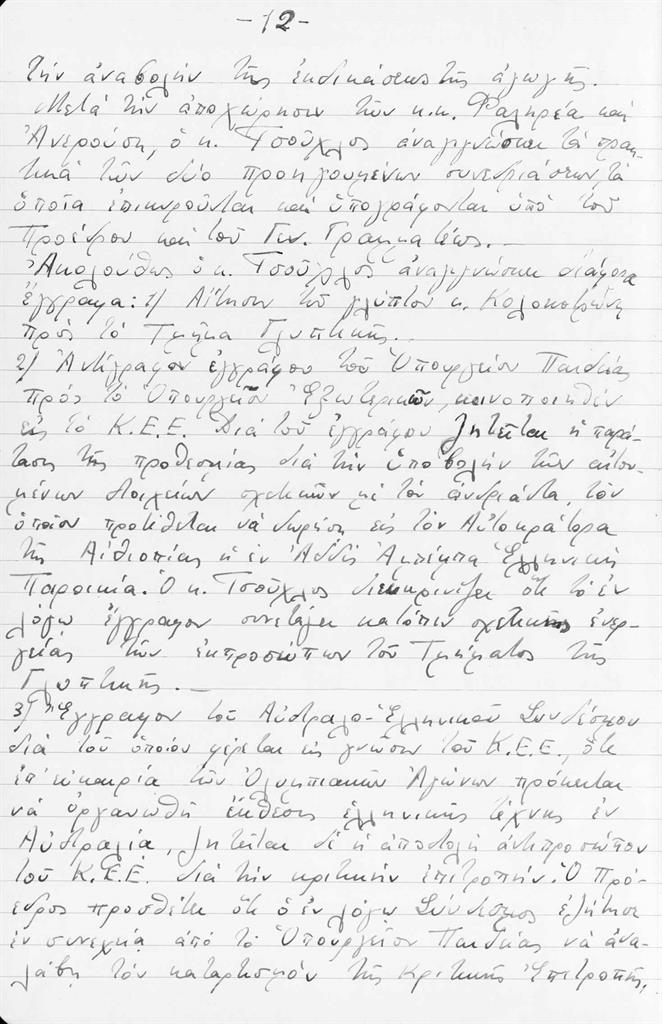 -12-
τήν ἀναβολήν τῆς ἐκδικάσεως τῆς ἀγωγῆς.
Μετά τήν ἀποχώρησιν τῶν κ.κ. Φαληρέα καί
Ἀνερούση, ὁ κ. Τσοῦχλος ἀναγιγνώσκει τά πρακ-
τικά τῶν δύο προηγουμένων συνεδριάσεων, τά
ὁποῖα ἐπικυροῦνται καί ὑπογράφονται ὑπό τοῦ
Προέδρου καί τοῦ Γεν. Γραμματέως. —
Ἀκολούθως ὁ κ. Τσοῦχλος ἀναγιγνώσκει διάφορα
ἔγγραφα: 1) Αἴτησιν τοῦ γλύπτου κ. Κολοκοτρώνη
πρός τό Τμῆμα Γλυπτικῆς. —
2) Ἀντίγραφον ἐγγράφου τοῦ Ὑπουργείου Παιδείας
πρός τό Ὑπουργεῖον Ἐξωτερικῶν, κοινοποιηθέν
εἰς τό Κ.Ε.Ε. Διά τοῦ ἐγγράφου ζητεῖται ἡ παρά-
τασις τῆς προθεσμίας διά τήν ὑποβολήν τῶν αἰτου-
μένων στοιχείων σχετικῶν μέ τόν ἀνδριάντα, τόν
ὁποῖον προτίθεται νά δωρήσῃ εἰς τόν Αὐτοκράτορα
τῆς Αἰθιοπίας ἡ ἐν Ἀδδίς Ἀμπέμπα Ἑλληνική
Παροικία. Ὁ κ. Τσοῦχλος διευκρινίζει ὅτι τό ἐν
λόγῳ ἔγγραφον συνετάγει κατόπιν σχετικῆς ἐνερ-
γείας τῶν ἐκπροσώπων τοῦ Τμήματος τῆς
Γλυπτικῆς. —
3) Ἔγγραφον τοῦ Αὐστραλο-Ἑλληνικοῦ Συνδέσμου
διά τοῦ ὁποίου φέρεται εἰς γνῶσιν τοῦ Κ.Ε.Ε., ὅτι
ἐπ' εὐκαιρίᾳ τῶν Ὀλυμπιακῶν Ἀγώνων πρόκειται
νά ὀργανωθῇ ἔκθεσις ἑλληνικῆς τέχνης ἐν
Αὐστραλίᾳ, ζητεῖται δέ ἡ ἀποστολή ἀντιπροσώπου
τοῦ Κ.Ε.Ε. διά τήν κριτικήν ἐπιτροπήν. Ὁ Πρό-
εδρος προσθέτει ὅτι ὁ ἐν λόγῳ Σύνδεσμος ἐζήτησε
ἐν συνεχείᾳ ἀπό τό Ὑπουργεῖον Παιδείας νά ἀνα-
λάβῃ τόν καταρτισμόν τῆς Κριτικῆς Ἐπιτροπῆς,